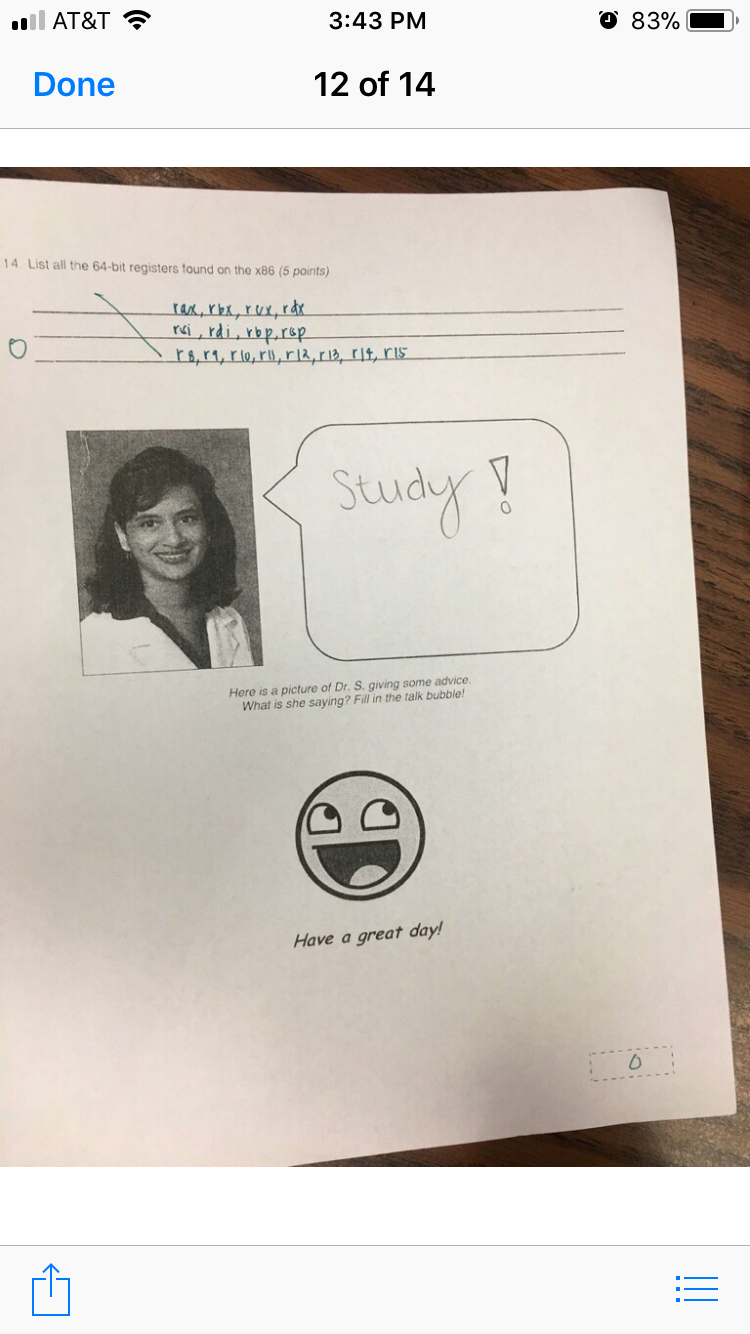 AT&T 3:43 PM 83%
Done 12 of 14
14. List all the 64-bit registers found on the x86 (5 points)
rax, rbx, rcx, rdx
rsi, rdi, rbp, rsp
0 r8, r9, r10, r11, r12, r13, r14, r15
Study!
Here is a picture of Dr. S. giving some advice.
What is she saying? Fill in the talk bubble!
Have a great day!
0